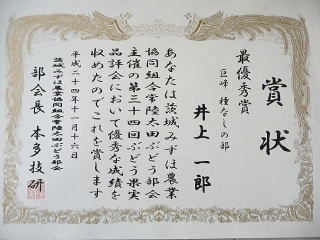 賞状
最優秀賞
巨峰 種なしの部
井上 一郎
あなたは茨城みずほ農業
協同組合常陸太田ぶどう部会
主催の第三十四回ぶどう果実
品評会において優秀な成績を
収めたのでこれを賞します
平成二十四年十一月十六日
茨城みずほ農業協同組合常陸太田ぶどう部会
部会長 本多技研